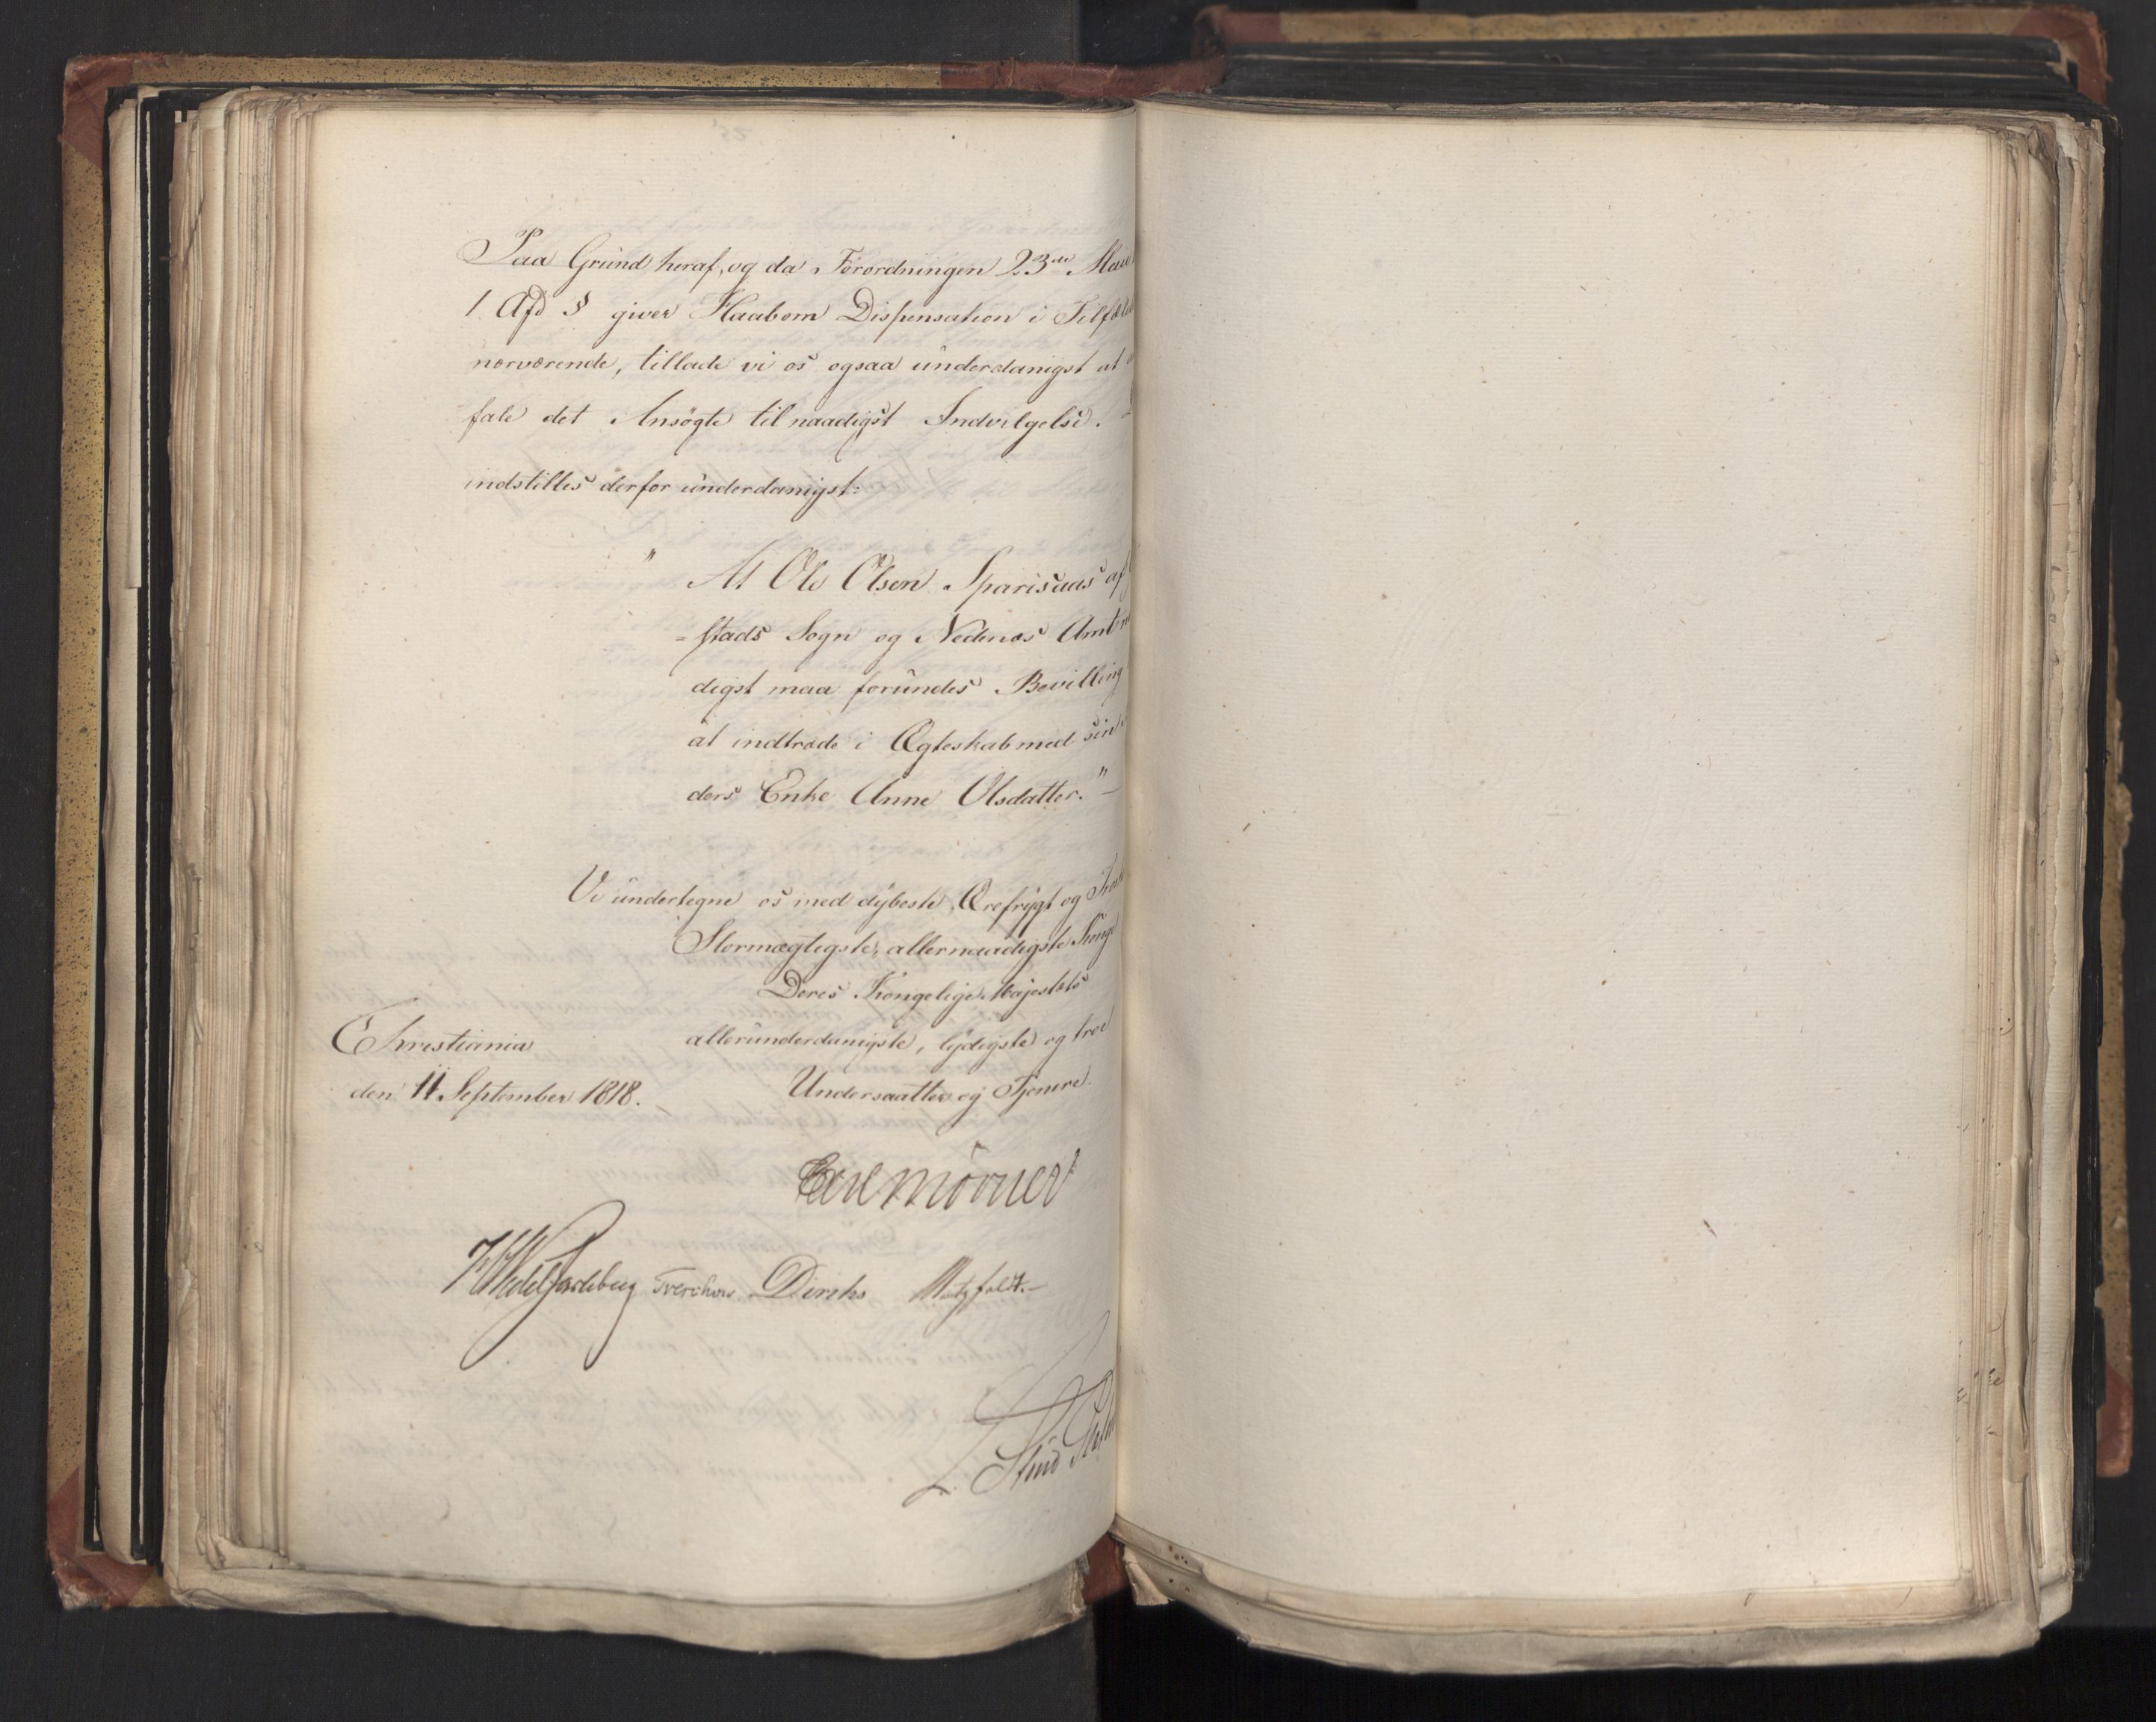 Paa Grund heraf, og da Forordningen 23de
1 Afd § giver Haab om Dispensation i
nærværende, tillade vi os ogsaa underdanigst at
fale det Ansøgte til naadigst Indvilgelse.
indstilles derfor underdanigst:
" At Ole Olsen af
-stads Sogn og Nedenæs Amt
digst maa forundes Bevilling
at indtræde i Ægteskab med sin
ders Enke Anne Olsdatter."
Vi undertegne os med dybeste Ærefrygt og
Stormægtigste, allernaadigste
Deres Kongelige Majestæts
Christiania
allerunderdanigste, lydigste og troe
den 11 September 1818.
Undersaatter og Tjenere.
Carl Mörner
Wedel Jarlsberg Diriks Motzfeldt